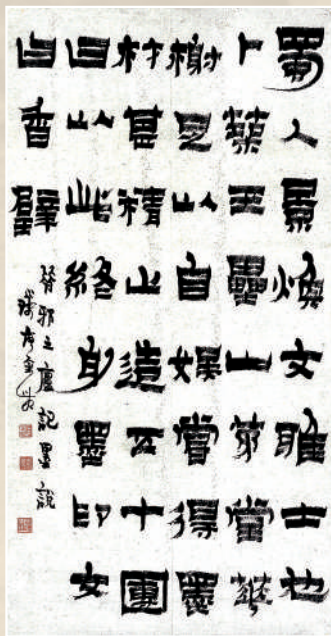 蜀人景煥文雅士也
卜築玉壘山茅堂花
榭足以自娛嘗得墨
材甚精止造五十團
曰以此終身墨印文
曰香璧
昔邪之廬記墨說